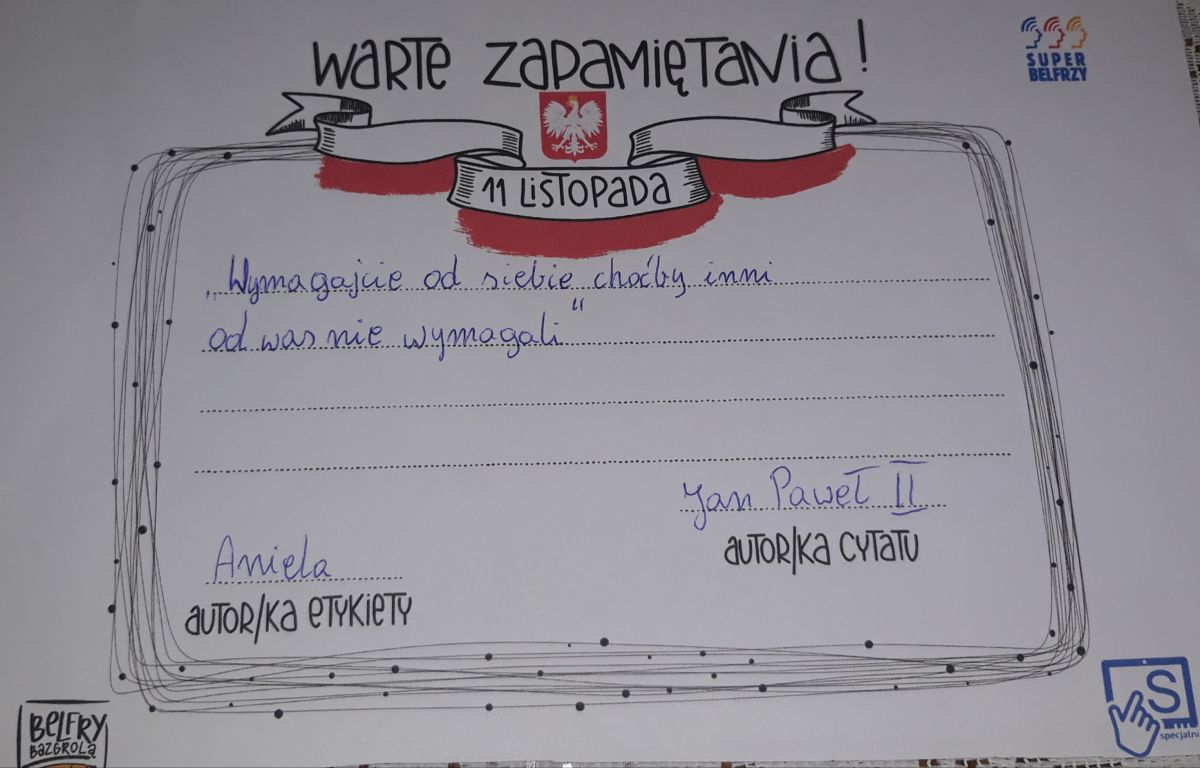 WARTE ZAPAMIĘTANIA!
SUPER
BELFRZY
11 LISTOPADA
„Wymagajcie od siebie choćby inni
od was nie wymagali"
Jan Paweł II
AUTOR/KA CYTATU
Aniela
AUTOR/KA ETYKIETY
BELFRY
BAZGROLĄ
S
specjalni